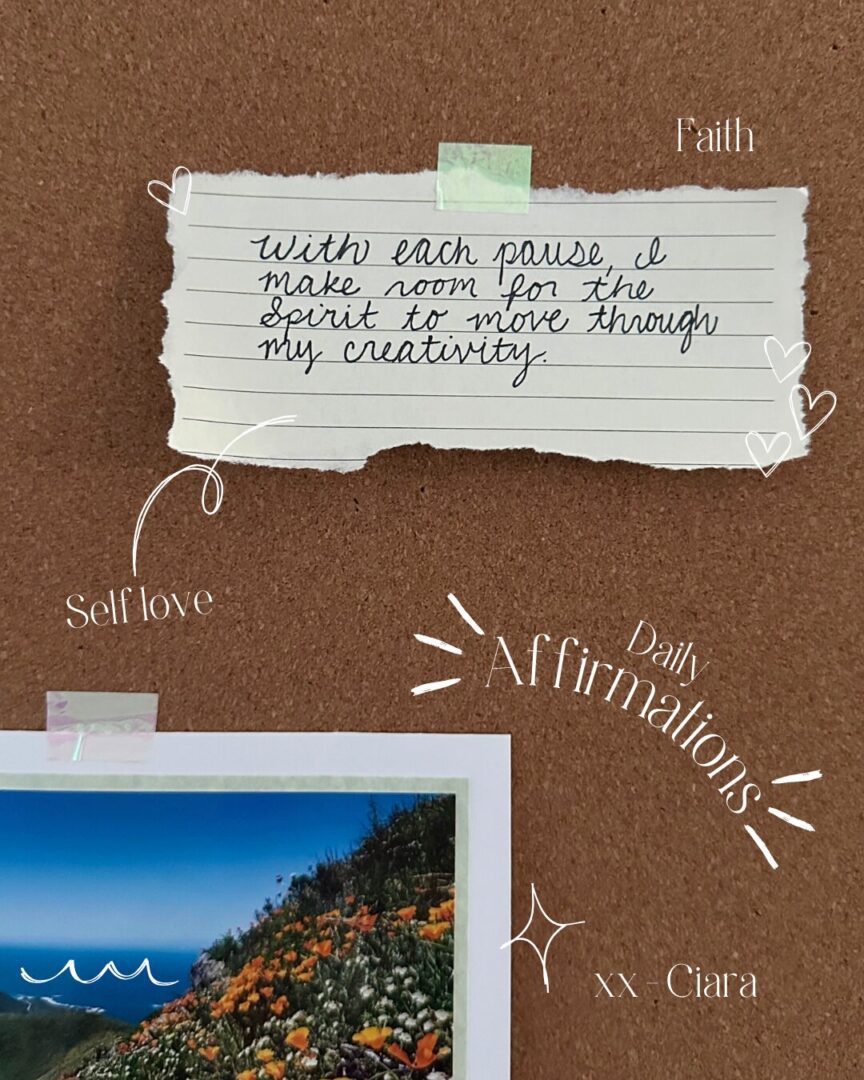 Faith
With each pause, I
make room for the
Spirit to move through
my creativity.
Self love
Daily
Affirmations
xx - Ciara